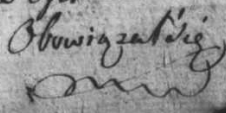 Obowiązał się